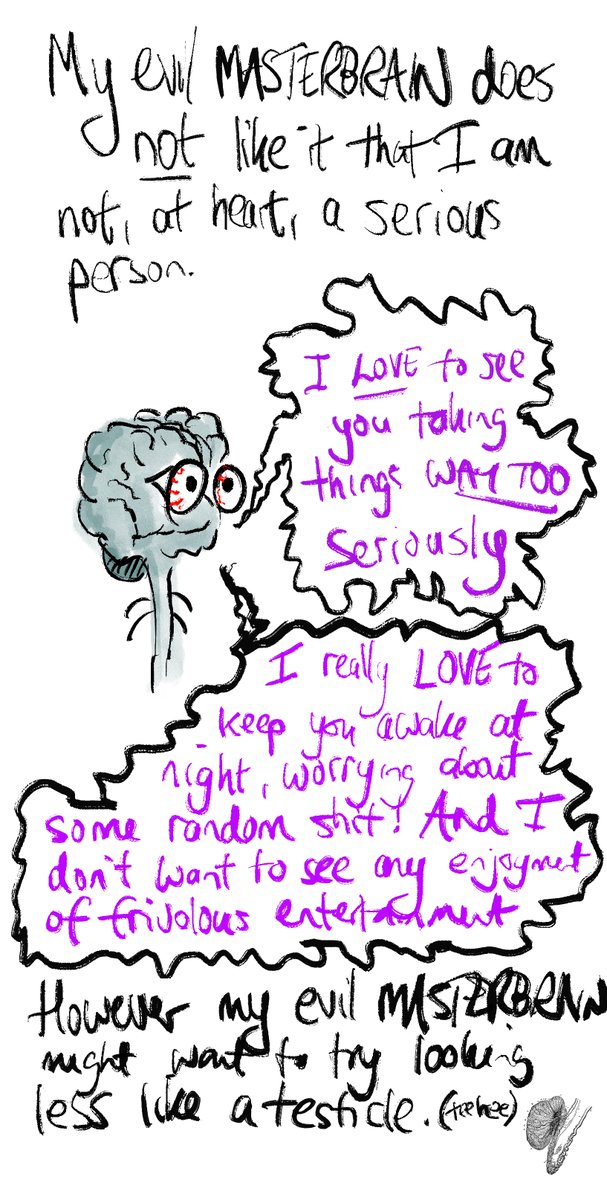 My evil MASTERBRAIN does
not like it that I am
not, at heart, a serious
person.
I LOVE to see
you taking
things WAY TOO
seriously
I really LOVE to
keep you awake at
night, worrying about
some random shit! And I
don't want to see any enjoyment
of frivolous entertainment
However my evil MASTERBRAIN
might want to try looking
less like a testicle. (tee hee)